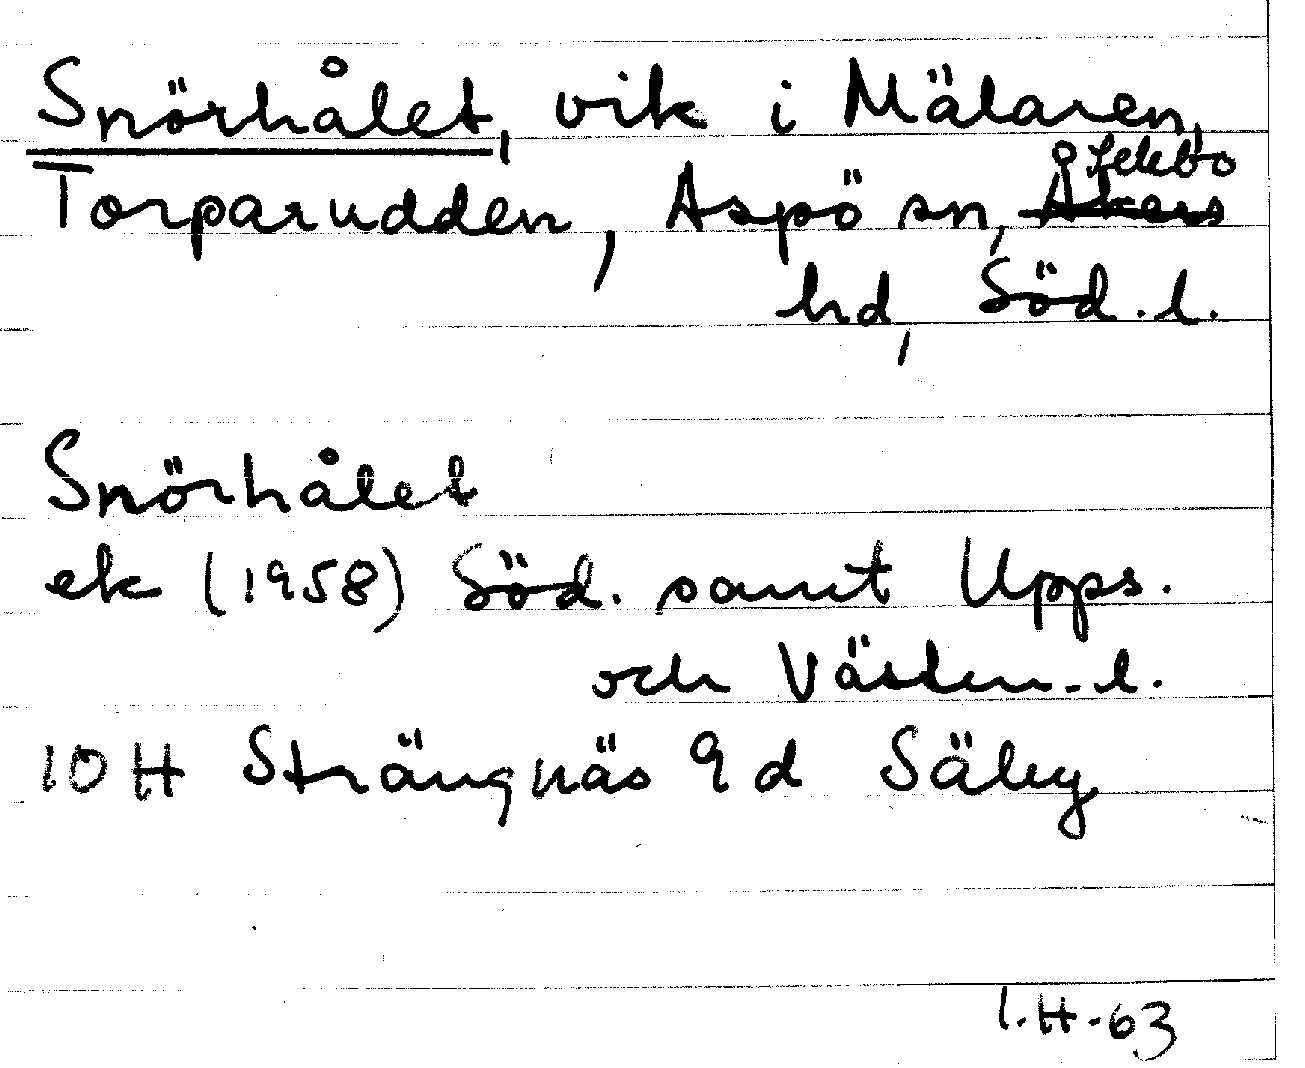 Snörhålet, vik i Mälaren,
Torparudden, Aspö sn, Åkers Selebo
hd, Söd. l.
Snörhålet
ek (1958) Söd. samt Upps.
och Västm. l.
10 H Strängnäs 9 d Säby
I.H-63